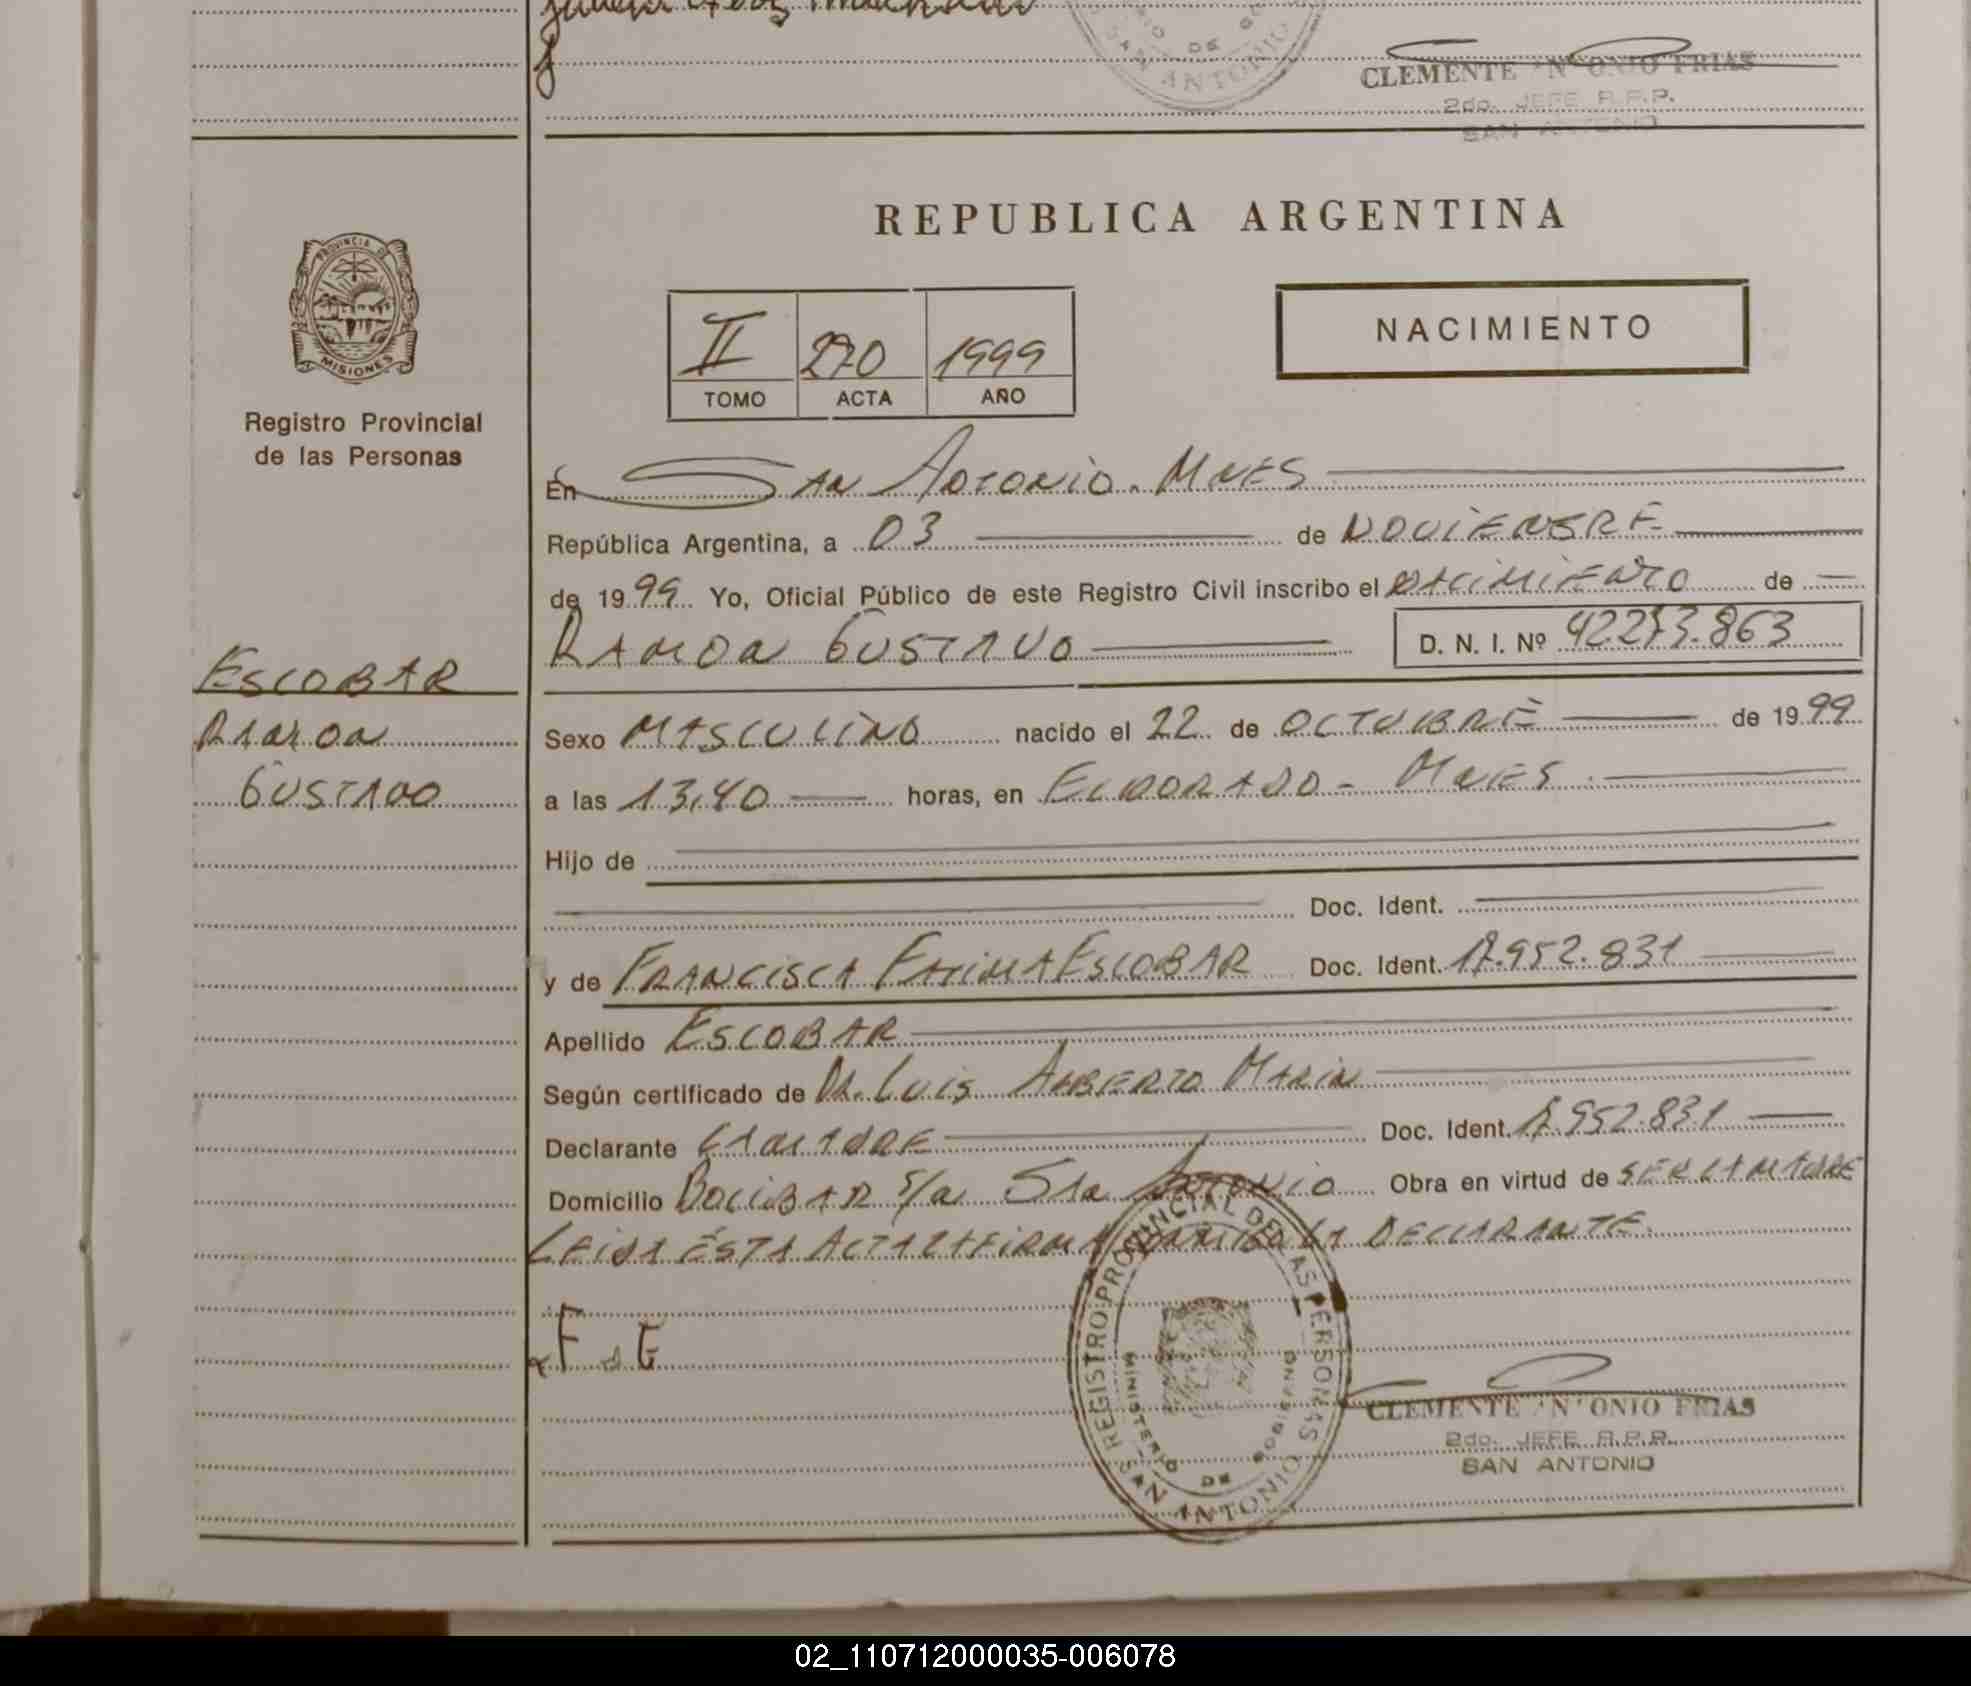 SAN ANTONIO
DE
CLEMENTE ANTONIO FRIAS
2do. JEFE R.P.P.
SAN ANTONIO
REPUBLICA ARGENTINA
PROVINCIA DE
MISIONES
Registro Provincial
de las Personas
II 270 1999
TOMO ACTA AÑO
NACIMIENTO
En SAN ANTONIO. MNES
República Argentina, a 03 de NOVIEMBRE
de 1999 Yo, Oficial Público de este Registro Civil inscribo el NACIMIENTO de
RAMON GUSTAVO D. N. I. Nº 42.273.863
ESCOBAR
RAMON
GUSTAVO
Sexo MASCULINO nacido el 22 de OCTUBRE de 1999
a las 13,40 horas, en ELDORADO - MNES.
Hijo de
Doc. Ident.
y de FRANCISCA FATIMA ESCOBAR Doc. Ident. 17.952.831
Apellido ESCOBAR
Según certificado de DR. LUIS ALBERTO MARIN
Declarante LA MADRE Doc. Ident. 17.952.831
Domicilio BOLIBAR S/N SAN ANTONIO Obra en virtud de SER LA MADRE
LEIDA ÉSTA ACTA LA FIRMA CONMIGO LA DECLARANTE.
F E
REGISTRO PROVINCIAL DE LAS PERSONAS
MINISTERIO DE GOBIERNO
SAN ANTONIO
CLEMENTE ANTONIO FRIAS
2do. JEFE R.P.P.
SAN ANTONIO
02_110712000035-006078